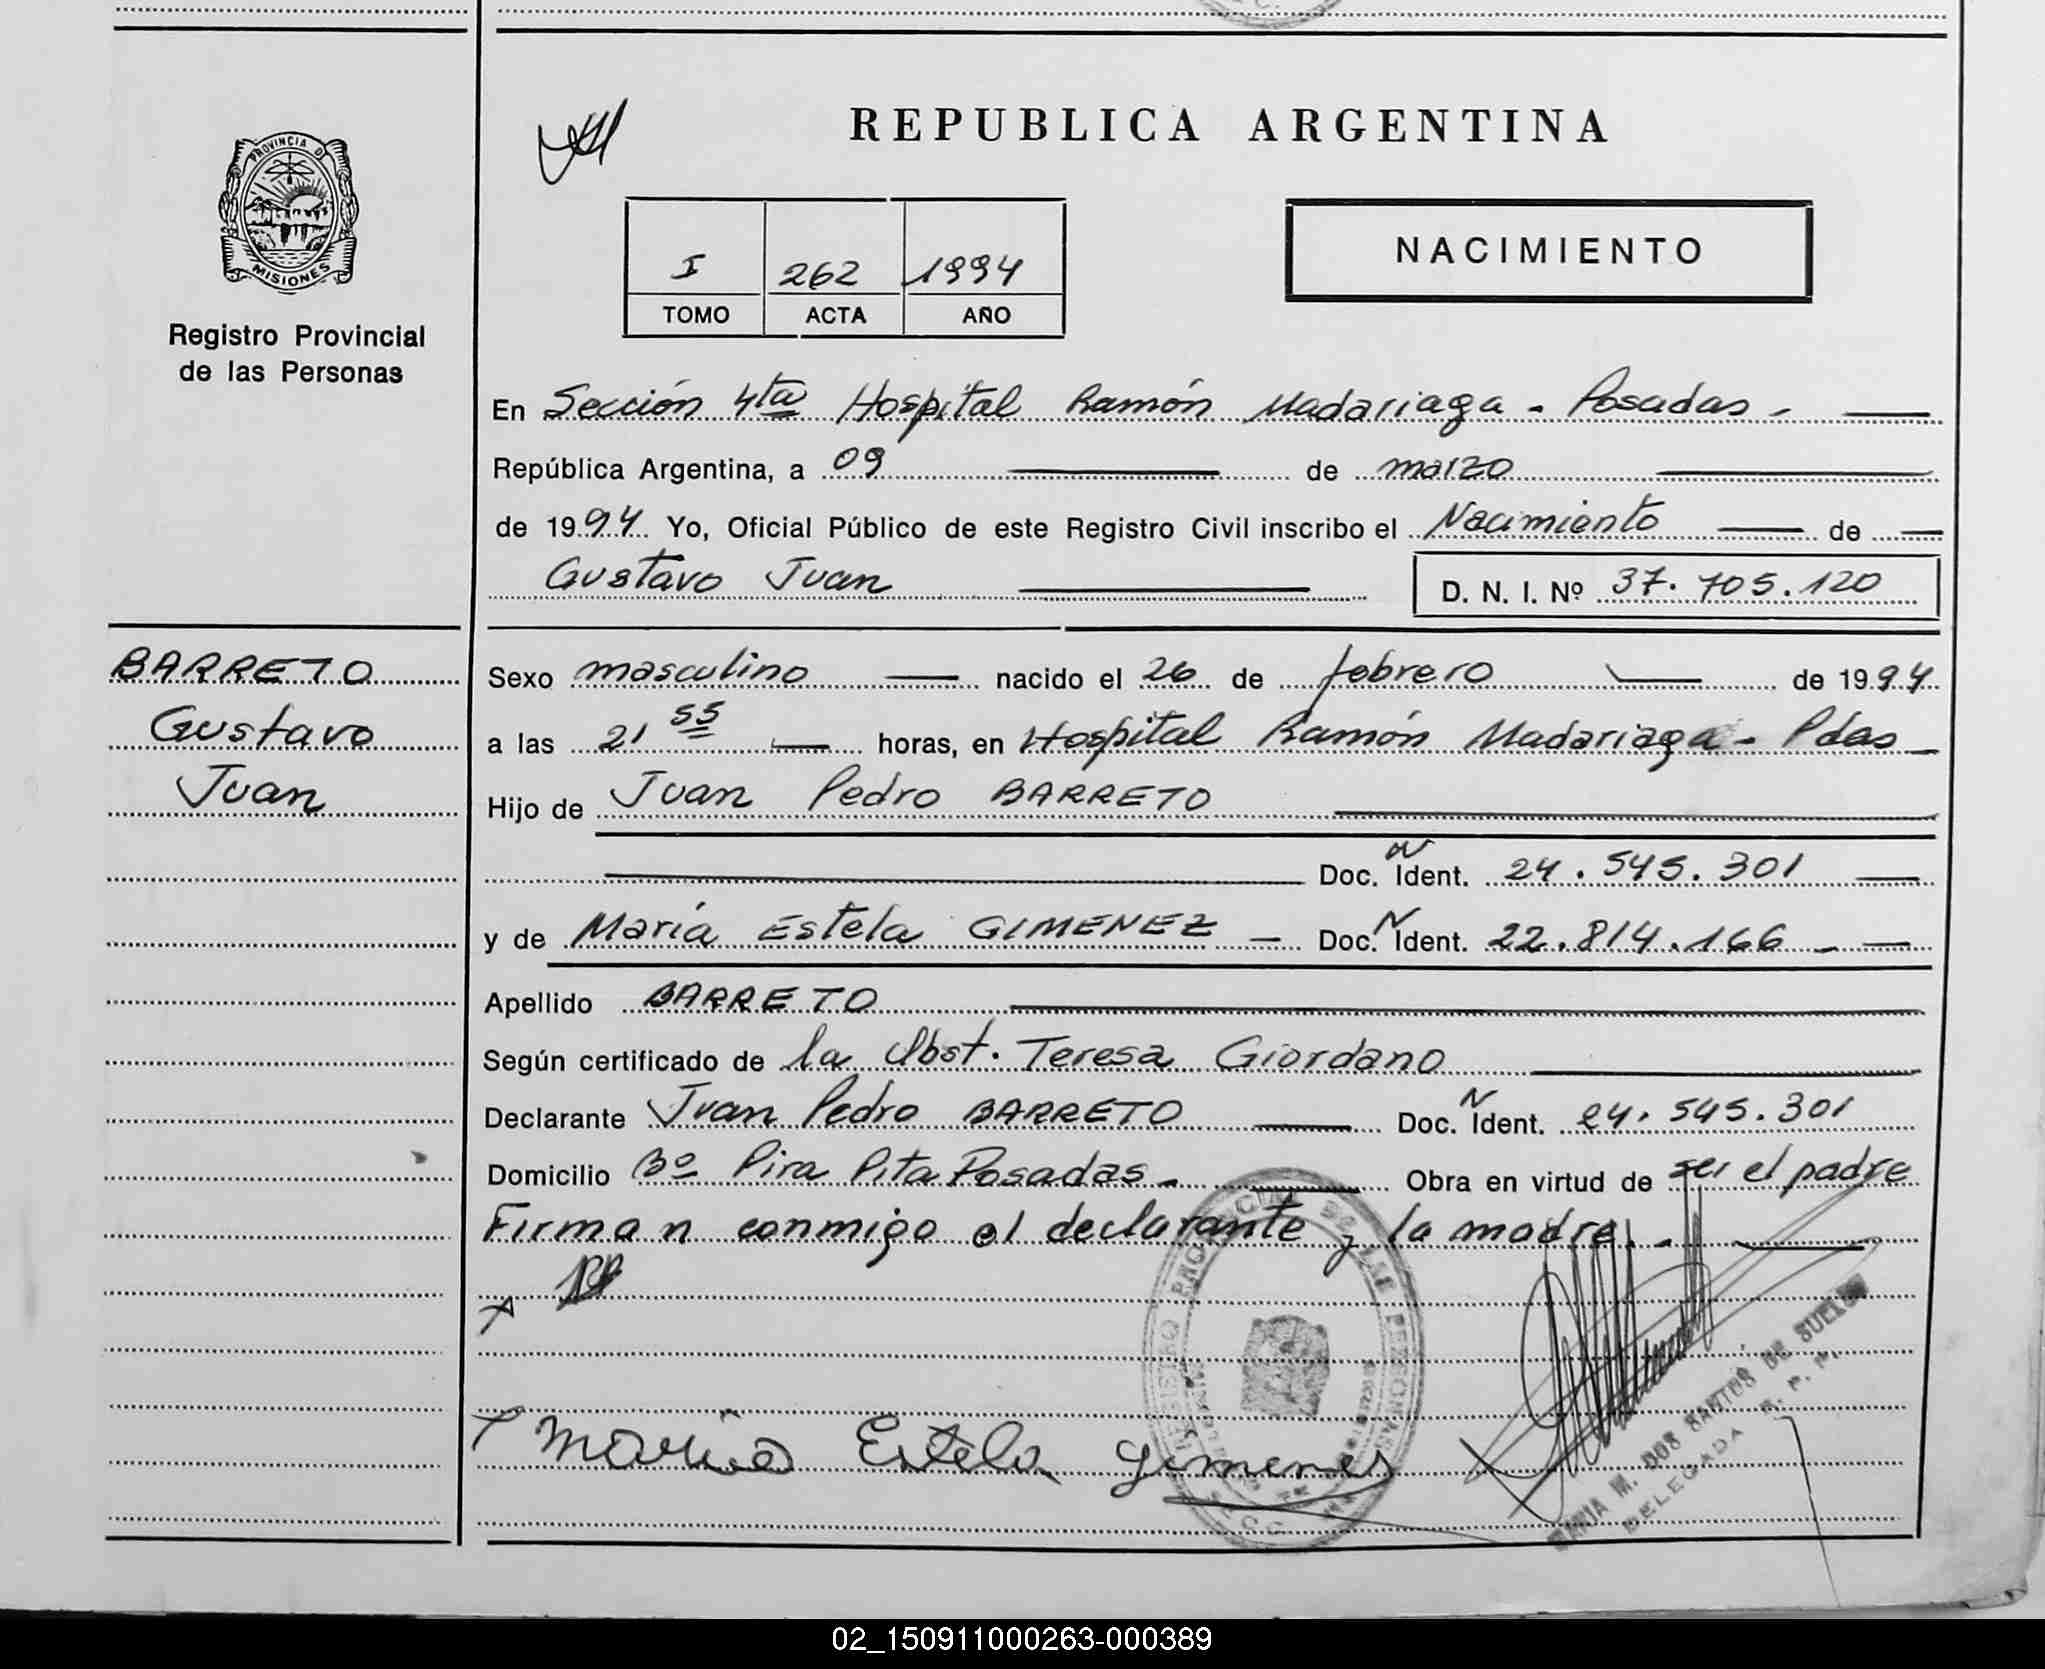 REPUBLICA ARGENTINA
PROVINCIA D
MISIONES
Registro Provincial
de las Personas
I 262 1994
TOMO ACTA AÑO
NACIMIENTO
En Sección 4ta Hospital Ramón Madariaga - Posadas -
República Argentina, a 09 de marzo
de 1994 Yo, Oficial Público de este Registro Civil inscribo el Nacimiento de
Gustavo Juan
D. N. I. Nº 37.705.120
BARRETO
Gustavo
Juan
Sexo masculino nacido el 26 de febrero de 1994
a las 21 55 horas, en Hospital Ramón Madariaga - Pdas
Hijo de Juan Pedro BARRETO
Doc. N Ident. 24.545.301
y de María Estela GIMENEZ - Doc. N Ident. 22.814.166 -
Apellido BARRETO
Según certificado de la Obst. Teresa Giordano
Declarante Juan Pedro BARRETO Doc. N Ident. 24.545.301
Domicilio Bº Pira Pita Posadas - Obra en virtud de ser el padre
Firman conmigo el declarante y la madre. -
María Estela Gimenes
DOS SANTOS DE
DELEGADA R. P. P.
02_150911000263-000389